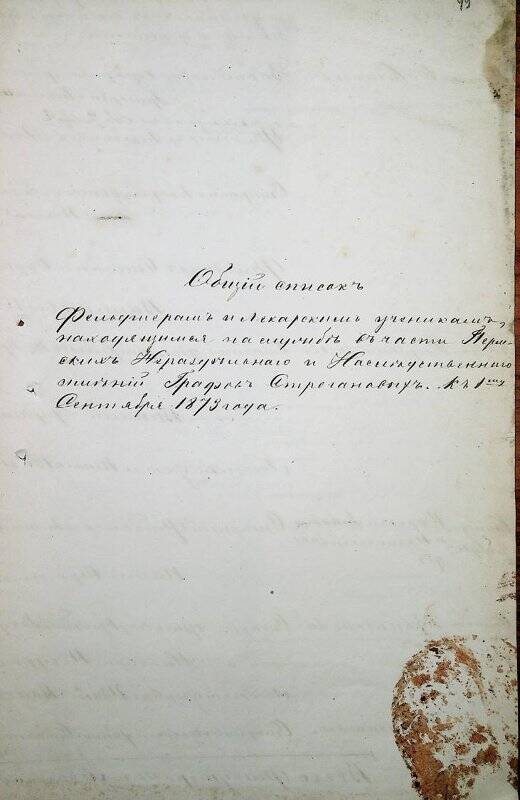 99
Общій списокъ
Фельдшерамъ и Лекарскимъ ученикамъ,
находящимся на службѣ въ части Перм-
скихъ Нераздѣльнаго и Наслѣдственнаго
имѣній Графовъ Строгановыхъ. Къ 1му
Сентября 1873 года.